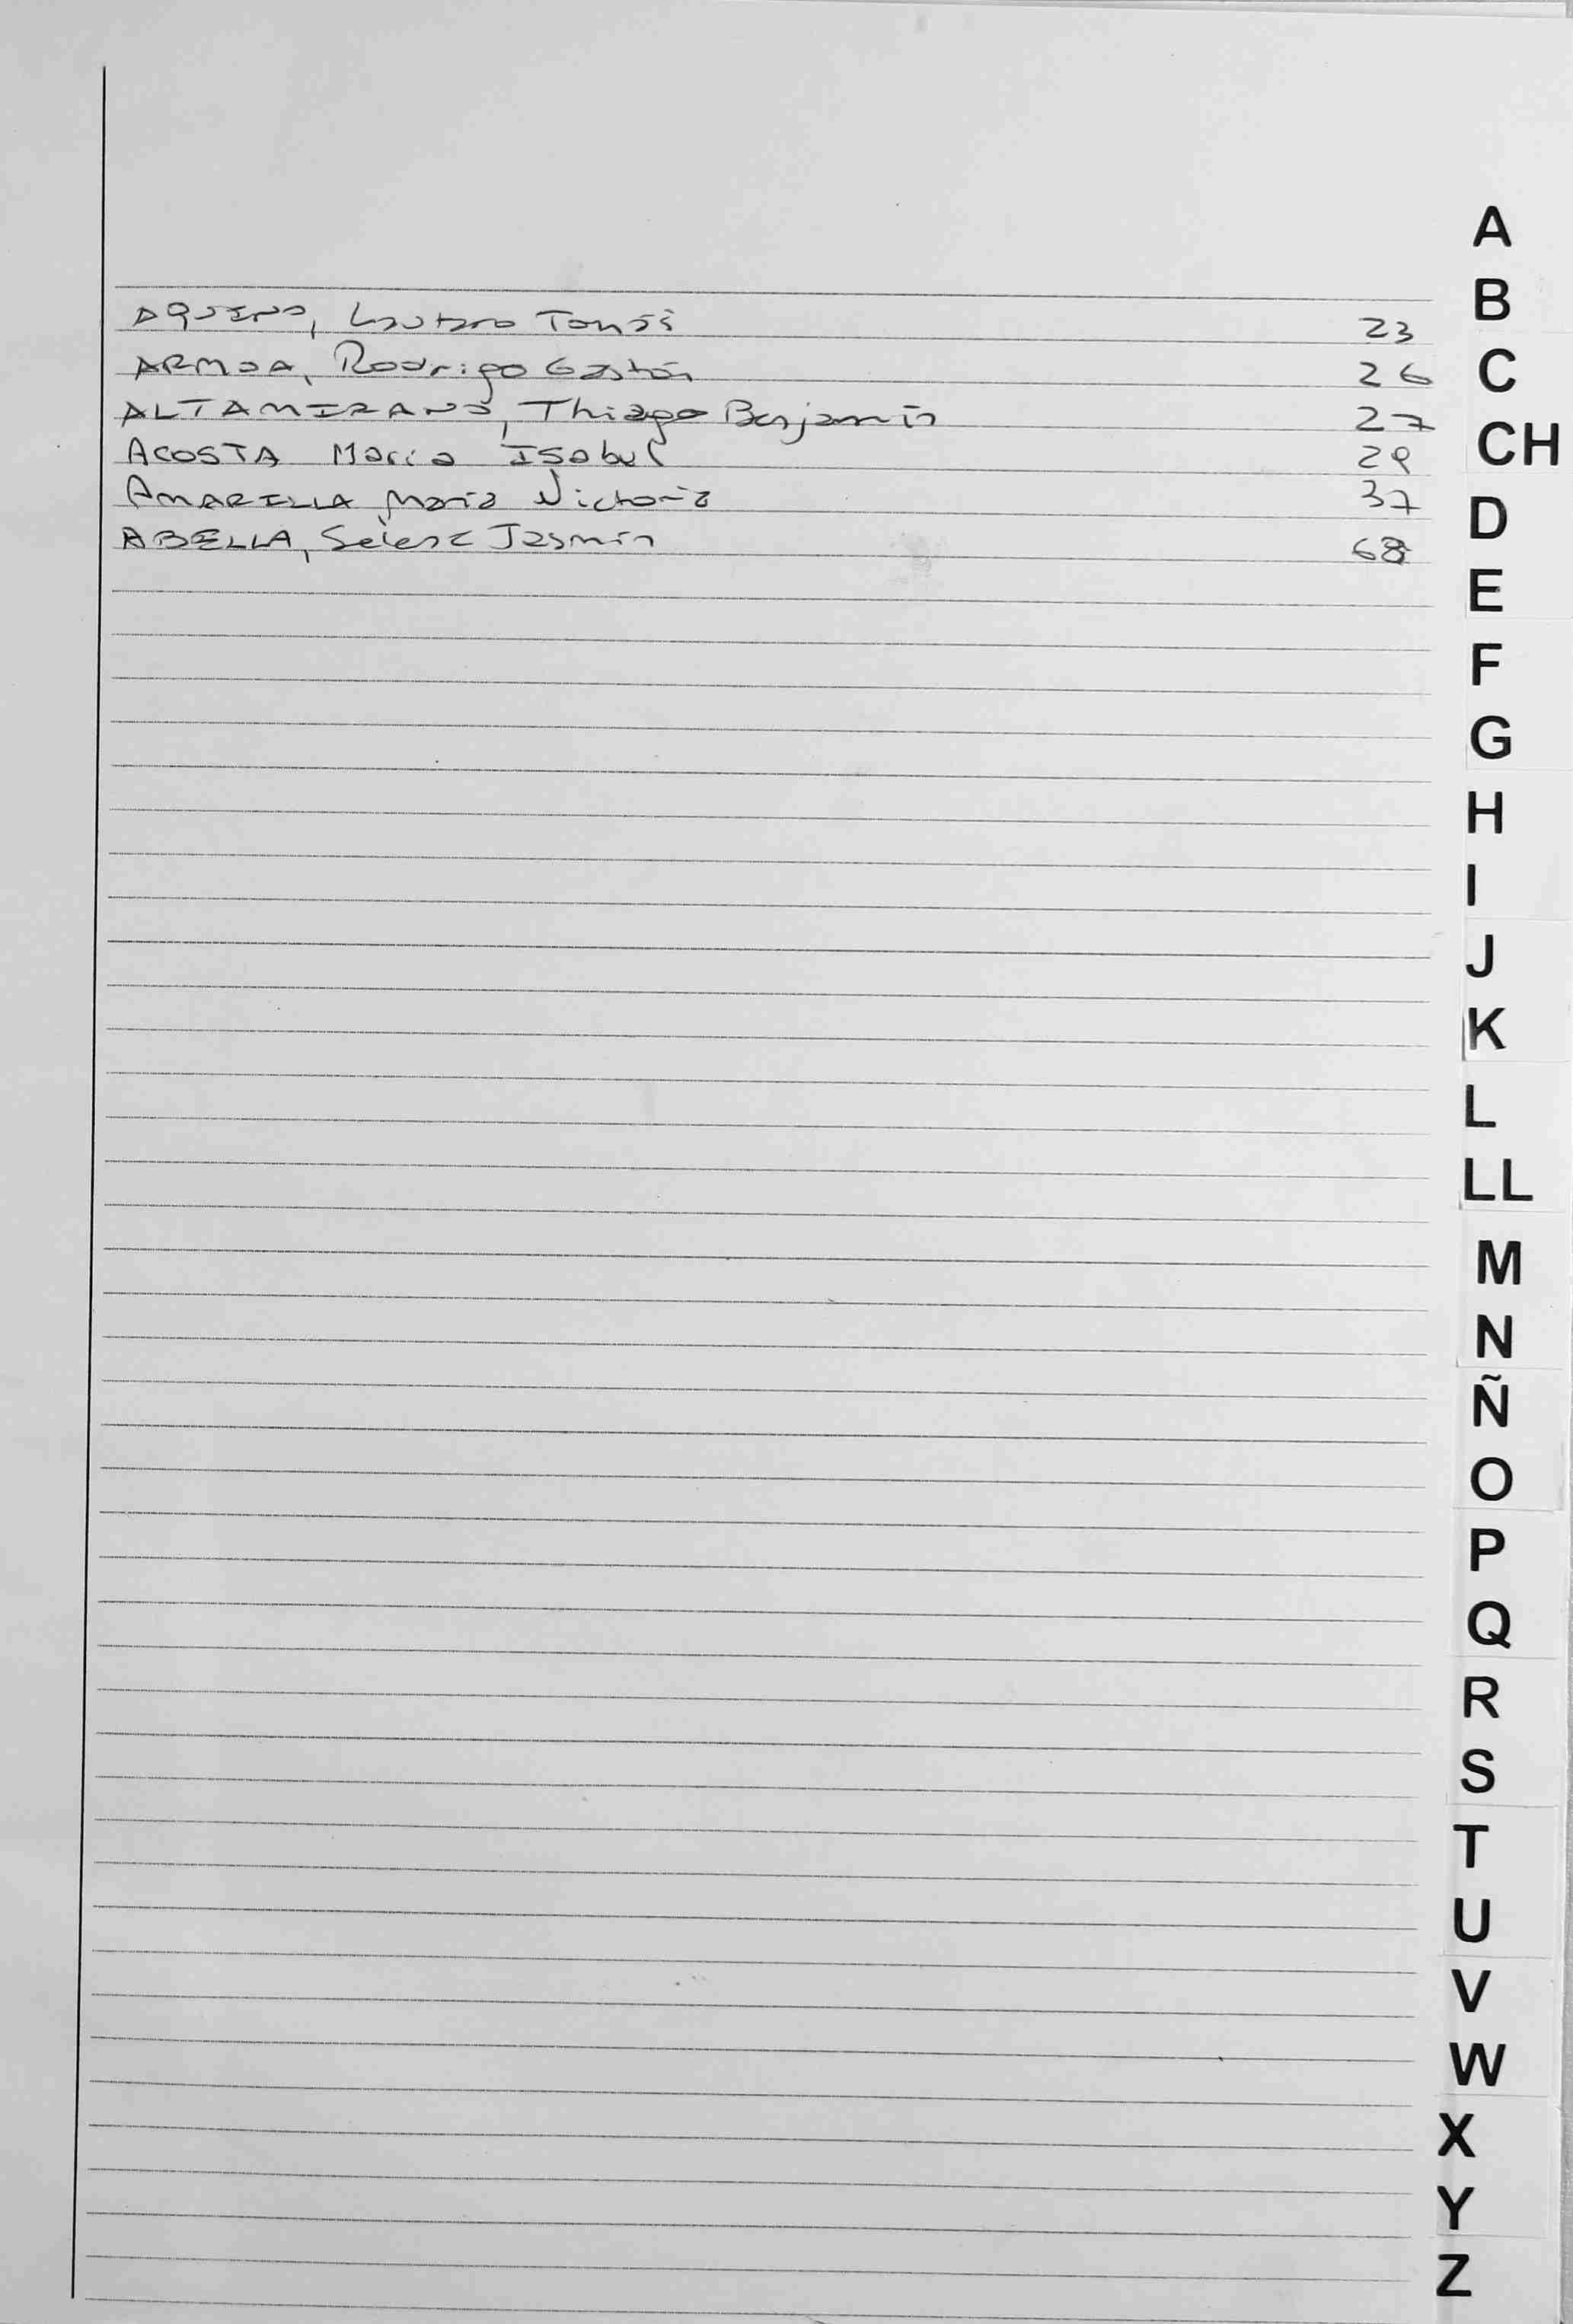 A
B
AQUINO, Lautaro Tomás 23
ARMOA, Rodrigo Gastón 26
C
ALTAMIRANO, Thiago Benjamín 27
CH
ACOSTA María Isabel 29
AMARILLA María Victoria 37
D
ABELLA, Selene Jasmín 68
E
F
G
H
I
J
K
L
LL
M
N
Ñ
O
P
Q
R
S
T
U
V
W
X
Y
Z